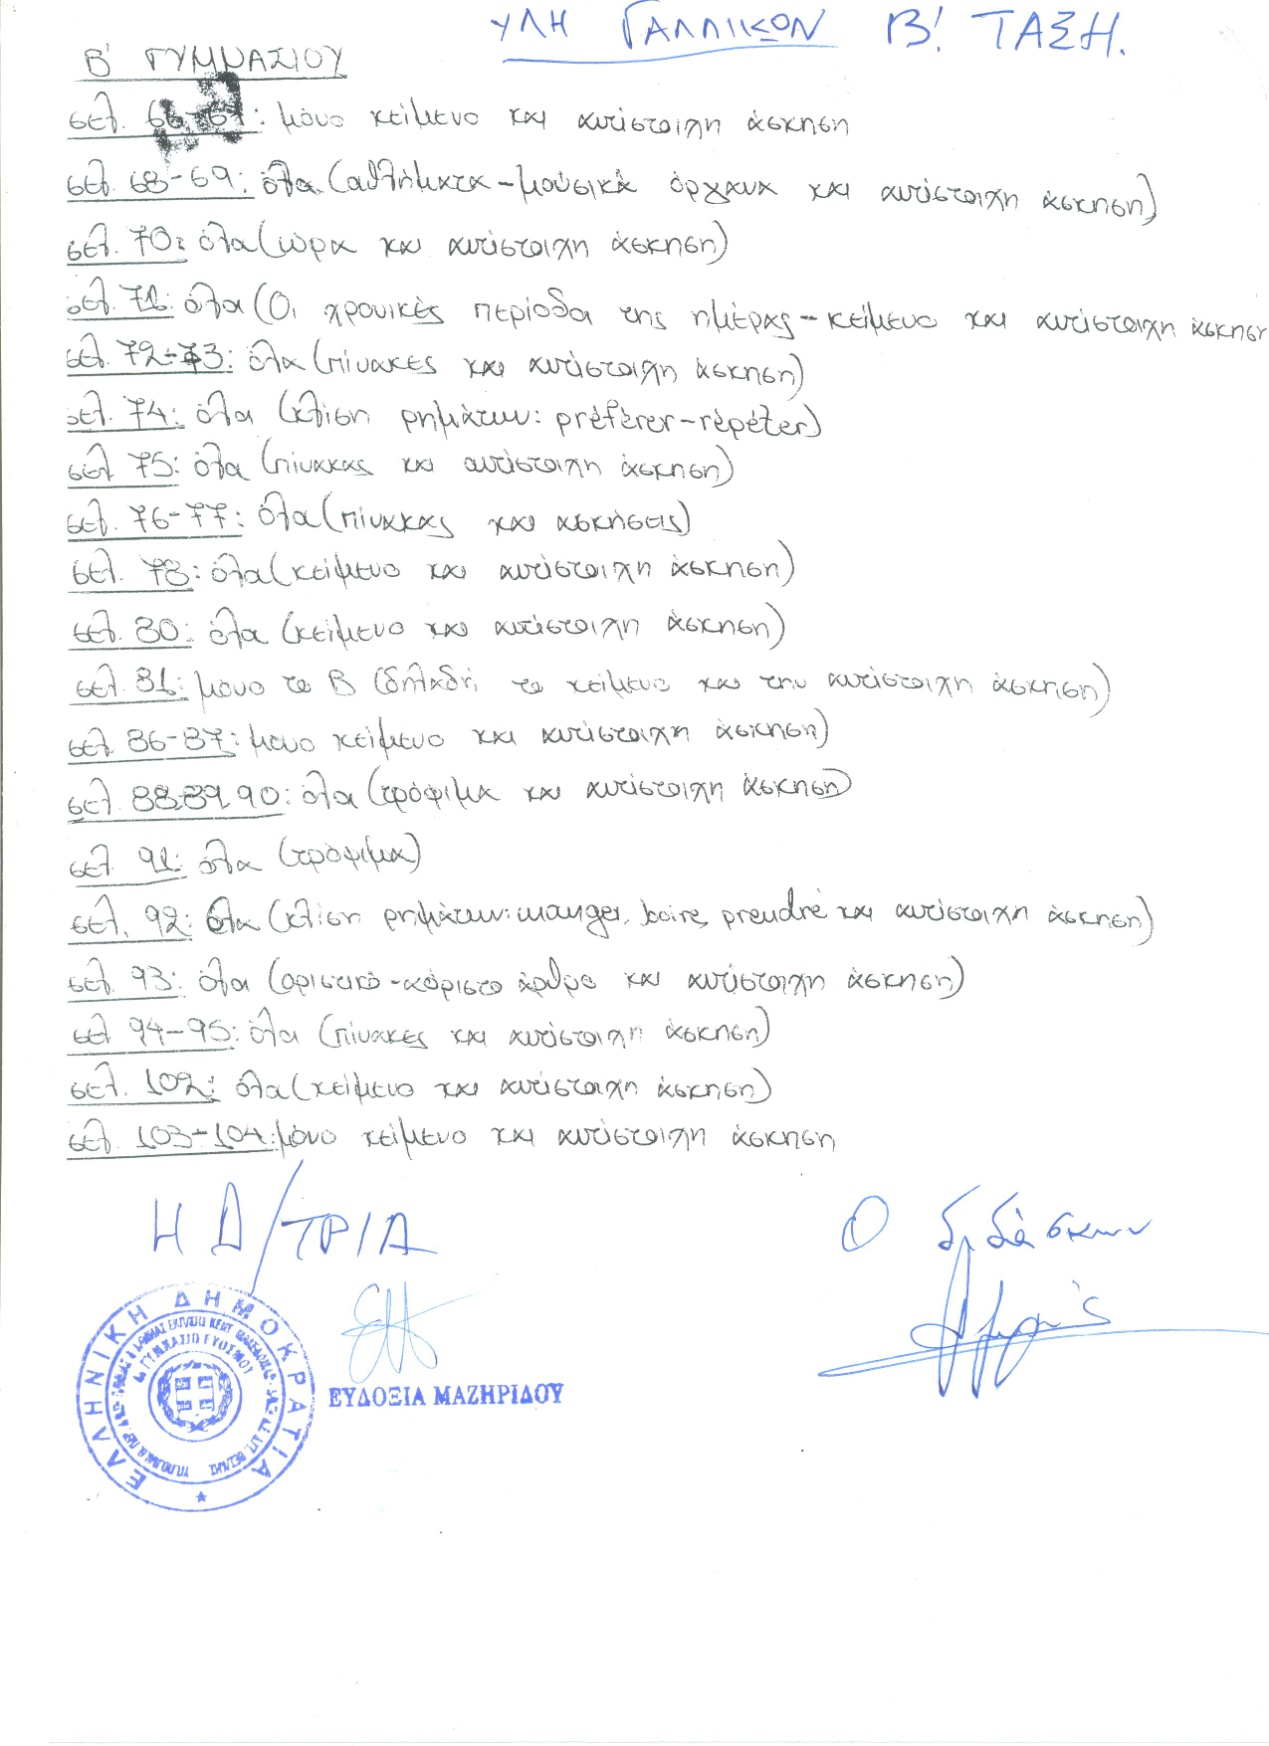 ΥΛΗ ΓΑΛΛΙΚΩΝ Β'. ΤΑΞΗ.
Β' ΓΥΜΝΑΣΙΟΥ
σελ. 66-67: μόνο κείμενο και αντίστοιχη άσκηση
σελ. 68-69: όλα (αθλήματα-μουσικά όργανα και αντίστοιχη άσκηση)
σελ. 70: όλα (ώρα και αντίστοιχη άσκηση)
σελ. 71: όλα (Οι χρονικές περίοδα της ημέρας-κείμενο και αντίστοιχη άσκηση
σελ. 72-73: όλα (πίνακες και αντίστοιχη άσκηση)
σελ. 74: όλα (κλίση ρημάτων: préférer-répéter)
σελ 75: όλα (πίνακας και αντίστοιχη άσκηση)
σελ. 76-77: όλα (πίνακας και ασκήσεις)
σελ. 78: όλα (κείμενο και αντίστοιχη άσκηση)
σελ. 80: όλα (κείμενο και αντίστοιχη άσκηση)
σελ. 81: μόνο το Β (δηλαδή το κείμενο και την αντίστοιχη άσκηση)
σελ 86-87: μόνο κείμενο και αντίστοιχη άσκηση)
σελ. 88,89,90: όλα (τρόφιμα και αντίστοιχη άσκηση)
σελ. 91: όλα (τρόφιμα)
σελ. 92: όλα (κλίση ρημάτων: manger, boire, prendre και αντίστοιχη άσκηση)
σελ. 93: όλα (οριστικό-αόριστο άρθρο και αντίστοιχη άσκηση)
σελ 94-95: όλα (πίνακες και αντίστοιχη άσκηση)
σελ. 102: όλα (κείμενο και αντίστοιχη άσκηση)
σελ. 103-104: μόνο κείμενο και αντίστοιχη άσκηση
Η Δ/ΤΡΙΑ
Ο διδάσκων
ΕΛΛΗΝΙΚΗ ΔΗΜΟΚΡΑΤΙΑ
4ο ΓΥΜΝΑΣΙΟ ΕΥΟΣΜΟΥ
ΕΥΔΟΞΙΑ ΜΑΖΗΡΙΔΟΥ